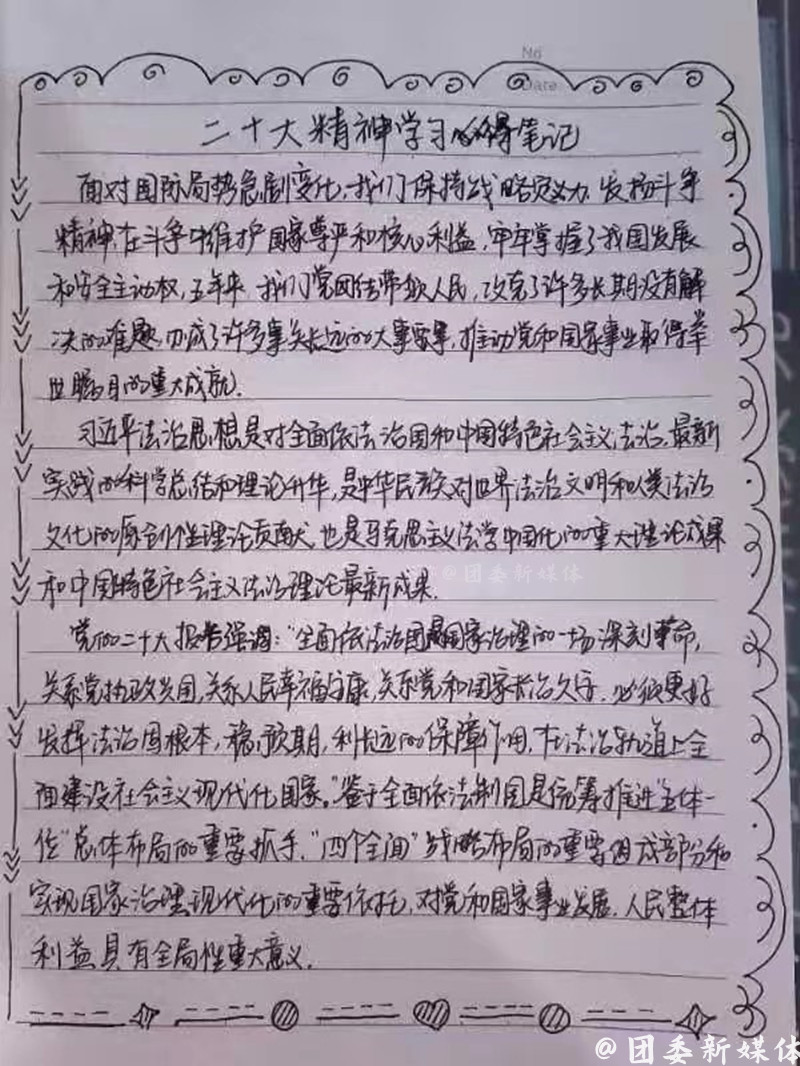 No
Date
二十大精神学习心得笔记
面对国际局势急剧变化，我们保持战略定力，发扬斗争
精神，在斗争中维护国家尊严和核心利益，牢牢掌握了我国发展
和安全主动权，五年来，我们党团结带领人民，攻克了许多长期没有解
决的难题，办成了许多事关长远的大事要事，推动党和国家事业取得举
世瞩目的重大成就。
习近平法治思想是对全面依法治国和中国特色社会主义法治最新
实践的科学总结和理论升华，是中华民族对世界法治文明和人类法治
文化的原创性理论贡献，也是马克思主义法学中国化的重大理论成果
和中国特色社会主义法治理论最新成果。
党的二十大报告强调：“全面依法治国是国家治理的一场深刻革命，
关系党执政兴国，关系人民幸福安康，关系党和国家长治久安。必须更好
发挥法治固根本，稳预期，利长远的保障作用，在法治轨道上全
面建设社会主义现代化国家。”鉴于全面依法制国是统筹推进“五体一
位”总体布局的重要抓手，“四个全面”战略布局的重要组成部分和
实现国家治理现代化的重要依托，对党和国家事业发展、人民整体
利益具有全局性重大意义。
@团委新媒体
@团委新媒体